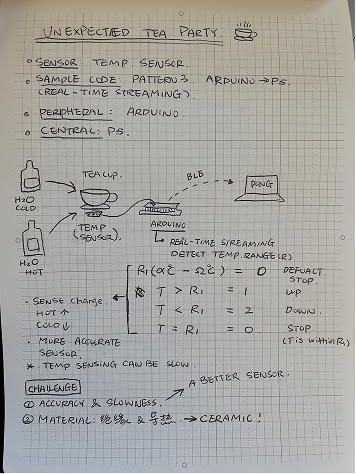 UNEXPECTED TEA PARTY
SENSOR: TEMP SENSOR.
SAMPLE CODE: PATTERN 3. ARDUINO → P5.
(REAL-TIME STREAMING)
PERIPHERAL: ARDUINO.
CENTRAL: P5.
H2O
COLD
TEACUP.
BLE
PONG
H2O
HOT
TEMP
(SENSOR).
ARDUINO.
REAL-TIME STREAMING
DETECT TEMP. RANGE (R)
R1 (α℃ - Ω℃) = 0 DEFUALT.
STOP.
T > R1 = 1 UP
T < R1 = 2 DOWN.
T = R1 = 0 STOP
(T is within R1)
• SENSE change.
HOT ↑
COLD ↓
• MORE ACCURATE
SENSOR.
* TEMP SENSING CAN BE SLOW.
CHALLENGE
→ A BETTER SENSOR.
① ACCURACY & SLOWNESS.
② MATERIAL: 绝缘 & 导热 → CERAMIC!